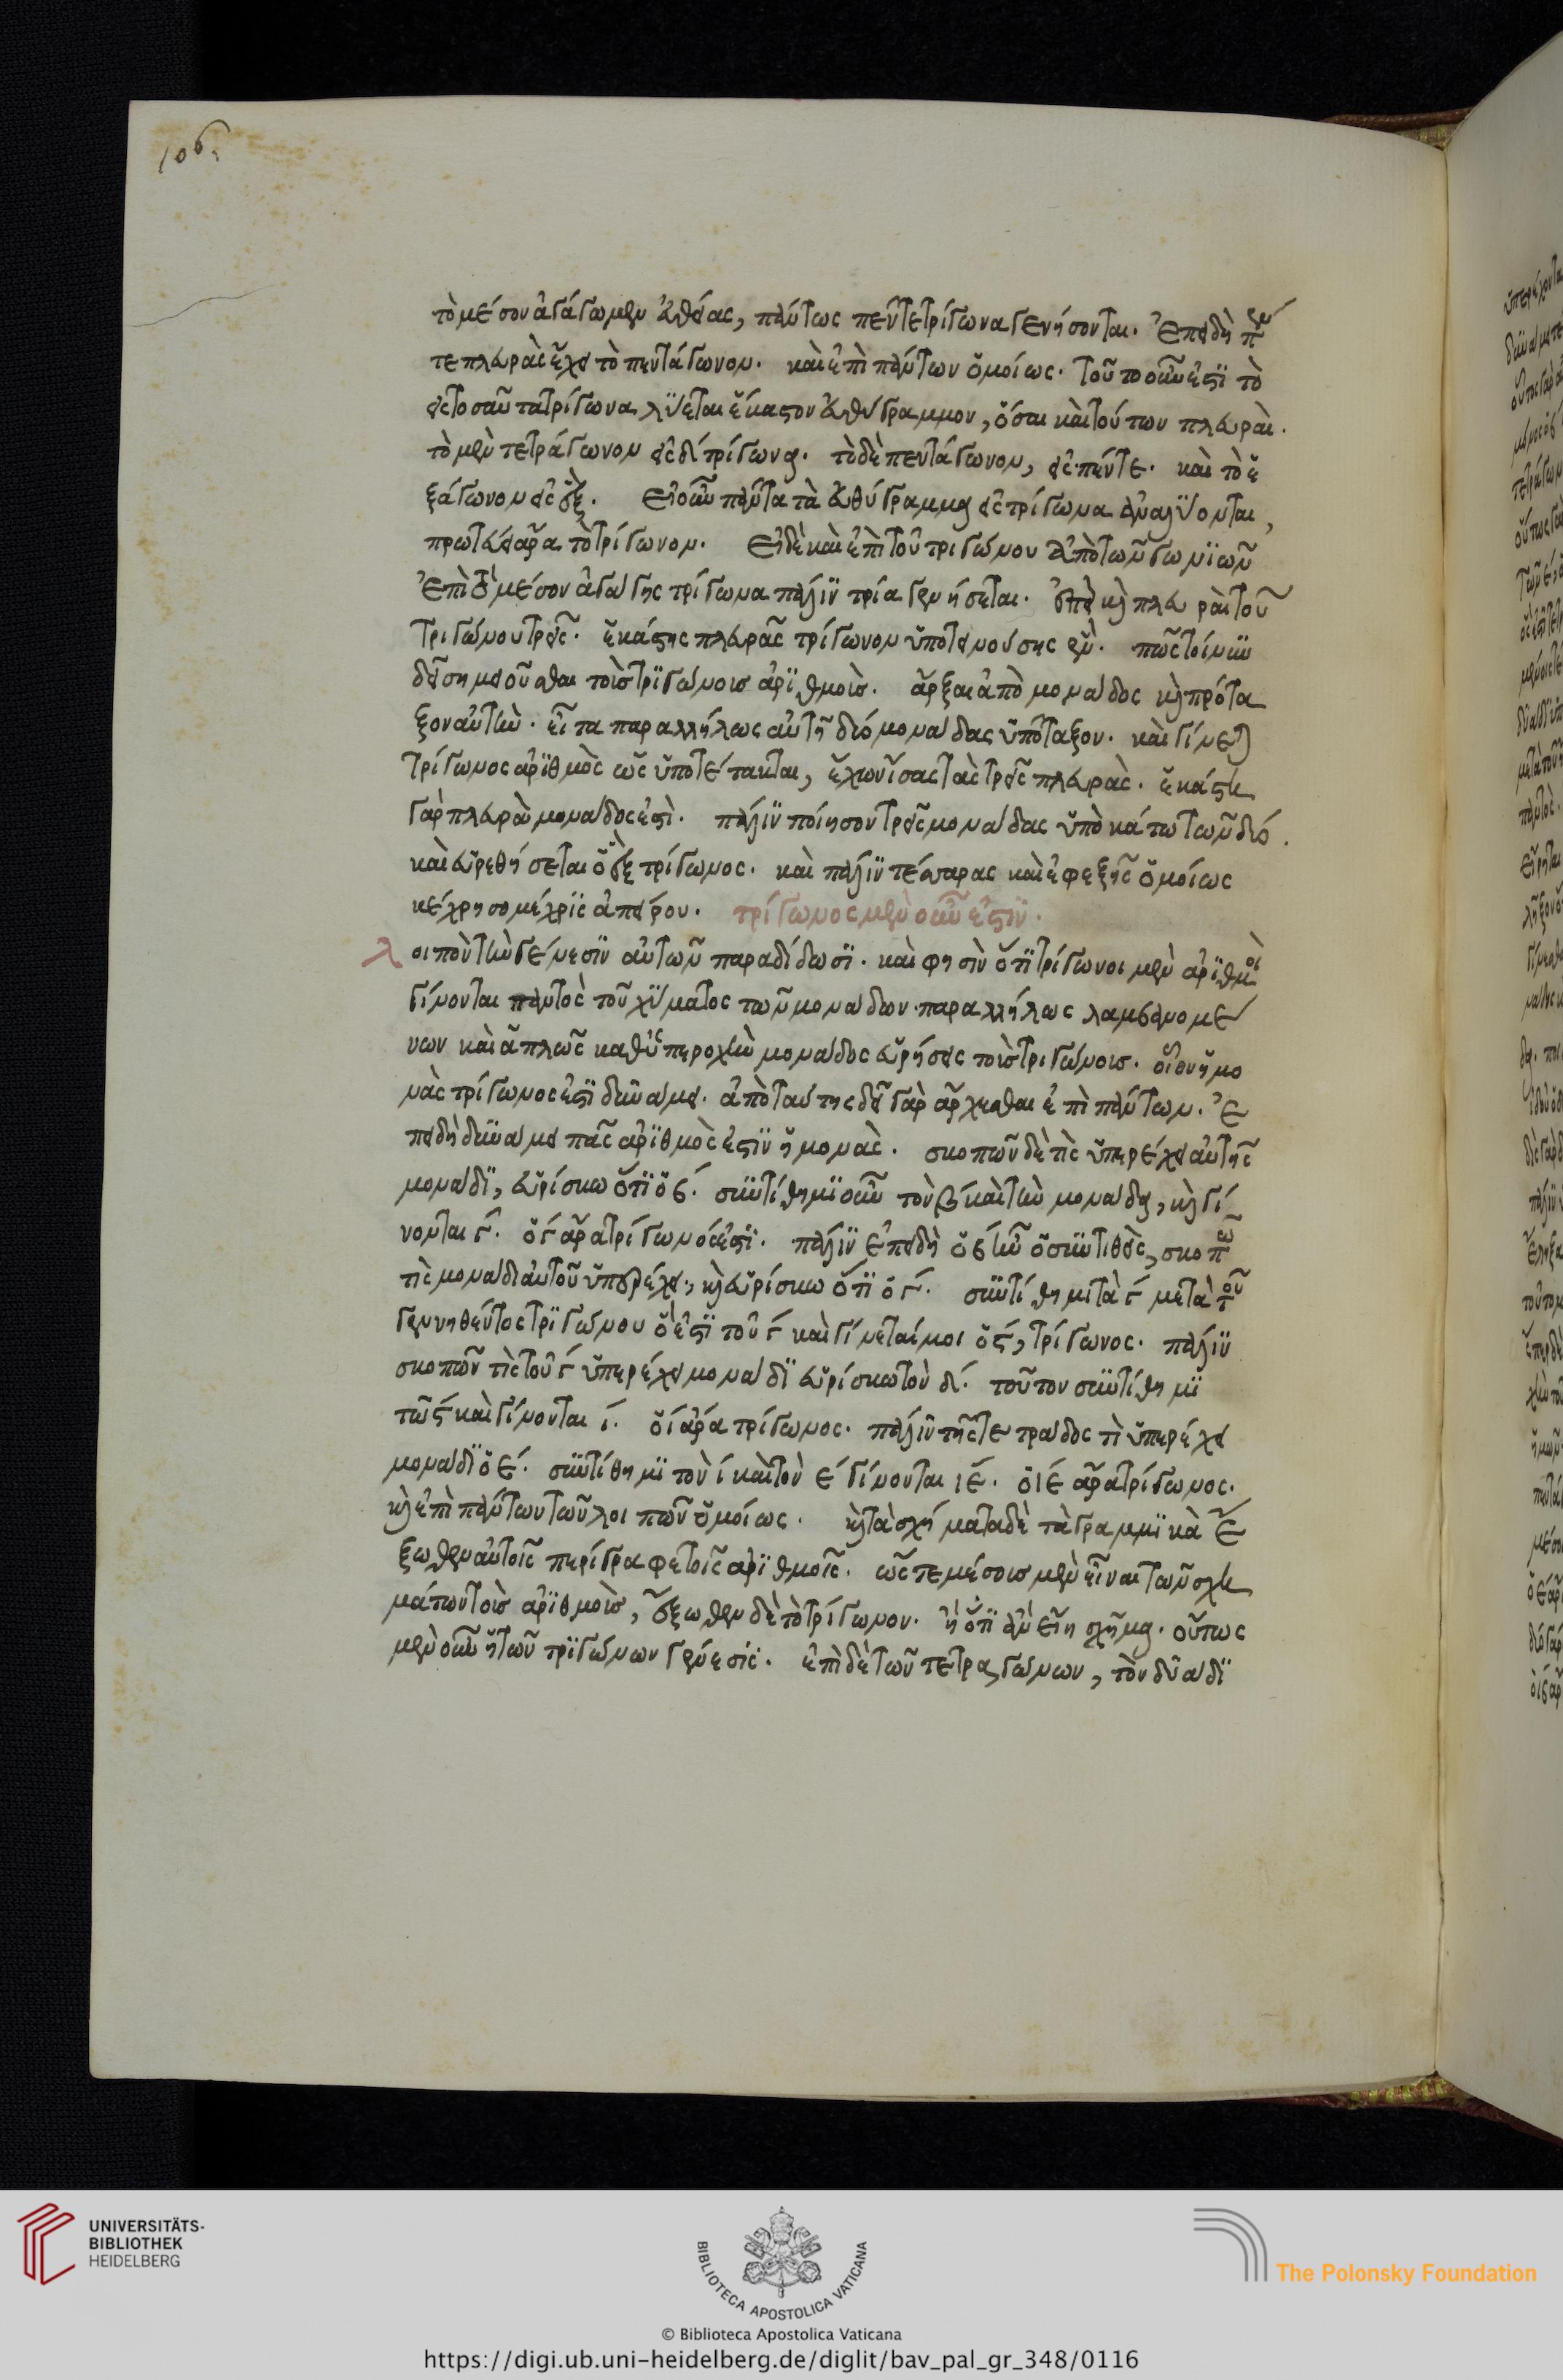 106.
τὸ μέσον ἀγάγωμεν εὐθείας, πάντως πέντε τρίγωνα γενήσονται. ἐπειδὴ πέν
τε πλευρὰς ἔχει τὸ πεντάγωνον. καὶ ἐπὶ πάντων ὁμοίως. τοῦτο οὖν ἐστὶ τὸ
εἰς τοσαῦτα τρίγωνα λύεται ἕκαστον εὐθύγραμμον, ὅσαι καὶ τούτων πλευραὶ.
τὸ μὲν τετράγωνον εἰς δ τρίγωνα. τὸ δὲ πεντάγωνον, εἰς πέντε. καὶ τὸ ἑ
ξάγωνον εἰς ἓξ. εἰ οὖν πάντα τὰ εὐθύγραμμα εἰς τρίγωνα ἀναλύονται,
πρωτεύει ἄρα τὸ τρίγωνον. εἰ δὲ καὶ ἐπὶ τοῦ τριγώνου ἀπὸ τῶν γωνιῶν
ἐπὶ τὸ μέσον ἀγάγης τρίγωνα πάλιν τρία γενήσεται. ἐπεὶ καὶ πλευραὶ τοῦ
τριγώνου τρεῖς. ἑκάστης πλευρᾶς τρίγωνον ὑποτεινούσης ἓν. πῶς τοίνυν
δεῖ σημειοῦσθαι τοὺς τριγώνοις ἀριθμοὶς. ἄρξαι ἀπὸ μονάδος καὶ πρόταξον
ξον αὐτὴν. εἶτα παραλλήλως αὐτῇ δύο μονάδας ὑπόταξον. καὶ γίνεται
τρίγωνος ἀριθμὸς ὡς ὑποτέτακται, ἔχων ἴσας τὰς τρεῖς πλευρὰς. ἑκάστη
γὰρ πλευρὰ μονάδος ἐστὶ. πάλιν ποίησον τρεῖς μονάδας ὑπὸ κάτω τῶν δύο.
καὶ εὑρεθήσεται ὁ ἓξ τρίγωνος. καὶ πάλιν τέσσαρας καὶ ἐφεξῆς ὁμοίως
κέχρησο μέχρις ἀπείρου. τρίγωνος μὲν οὖν ἐστὶν.
λοιπὸν τὴν γένεσιν αὐτῶν παραδίδωσι. καὶ φησὶν ὅτι τρίγωνοι μὲν ἀριθμοὶ
γίνονται παντὸς τοῦ χύματος τῶν μονάδων παραλλήλως λαμβανομέ
νων καὶ ἁπλῶς καθ' ὑπεροχὴν μονάδος εὑρήσεις τοὶς τριγώνοις. οἷον ἡ μο
νὰς τρίγωνος ἐστὶ δυνάμει. ἀπὸ ταύτης δεῖ γὰρ ἄρχεσθαι ἐπὶ πάντων. ἐ
πειδὴ δυνάμει πᾶς ἀριθμὸς ἐστὶν ἡ μονὰς. σκοπῶν δὲ τὶς ὑπερέχει αὐτῆς
μονάδι, εὑρίσκω ὅτι ὁ β. συντίθημι οὖν τὸν β καὶ τὴν μονάδα, καὶ γί
νονται γ. ὁ γ ἄρα τρίγωνός ἐστι. πάλιν ἐπειδὴ ὁ β ἦν ὁ συντιθεὶς, σκοπῶ
τὶς μονάδι αὐτοῦ ὑπερέχει, καὶ εὑρίσκω ὅτι ὁ γ. συντίθημι τὰ γ μετὰ τοῦ
γεννηθέντος τριγώνου ὅ ἐστι τοῦ γ καὶ γίνεταί μοι ὁ ς, τρίγωνος. πάλιν
σκοπῶν τὶς τοῦ γ ὑπερέχει μονάδι εὑρίσκω τὸν δ. τοῦτον συντίθημι
τῶ ς καὶ γίνονται ι. ὁ ι ἄρα τρίγωνος. πάλιν τῆς τετράδος τὶ ὑπερέχει
μονάδι ὁ ε. συντίθημι τὸν ι καὶ τὸν ε γίνονται ιε. ὁ ιε ἄρα τρίγωνος.
καὶ ἐπὶ πάντων τῶν λοιπῶν ὁμοίως. καὶ τὰ σχήματα δὲ τὰ γραμμικὰ ἔ
ξωθεν αὐτοῖς περίγραφε τοῖς ἀριθμοῖς. ὥστε μέσοις μὲν εἶναι τῶν σχη
μάτων τοὶς ἀριθμοὶς, ἔξωθεν δὲ τὸ τρίγωνον. ἢ ὅτι ἂν εἴη σχῆμα. οὕτως
μὲν οὖν ἡ τῶν τριγώνων γένεσις. ἐπὶ δὲ τῶν τετραγώνων, τὸν δυάδι
UNIVERSITÄTS-
BIBLIOTHEK
HEIDELBERG
BIBLIOTECA APOSTOLICA VATICANA
The Polonsky Foundation
© Biblioteca Apostolica Vaticana
https://digi.ub.uni-heidelberg.de/diglit/bav_pal_gr_348/0116